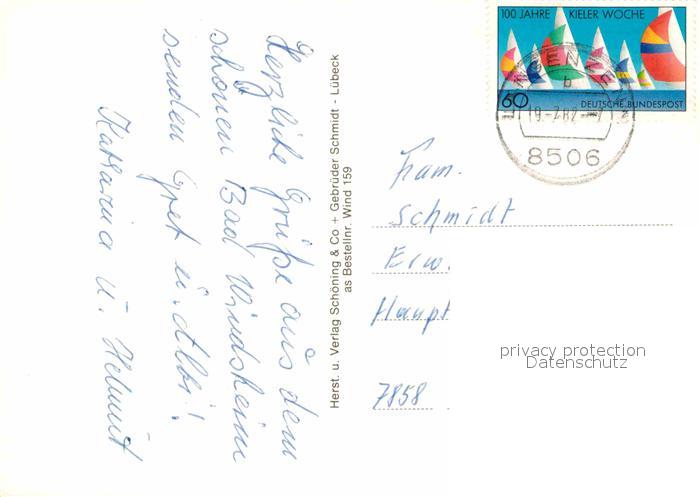 Herzliche Grüße aus dem
schönen Bad Windsheim
senden Gret
Katharina u. Helmut
Herst. u. Verlag Schöning & Co + Gebrüder Schmidt - Lübeck
as Bestellnr. Wind 159
100 JAHRE KIELER WOCHE
60 DEUTSCHE BUNDESPOST
b
8506
Fam.
Schmidt
Erw.
Haupt
7858
privacy protection
Datenschutz